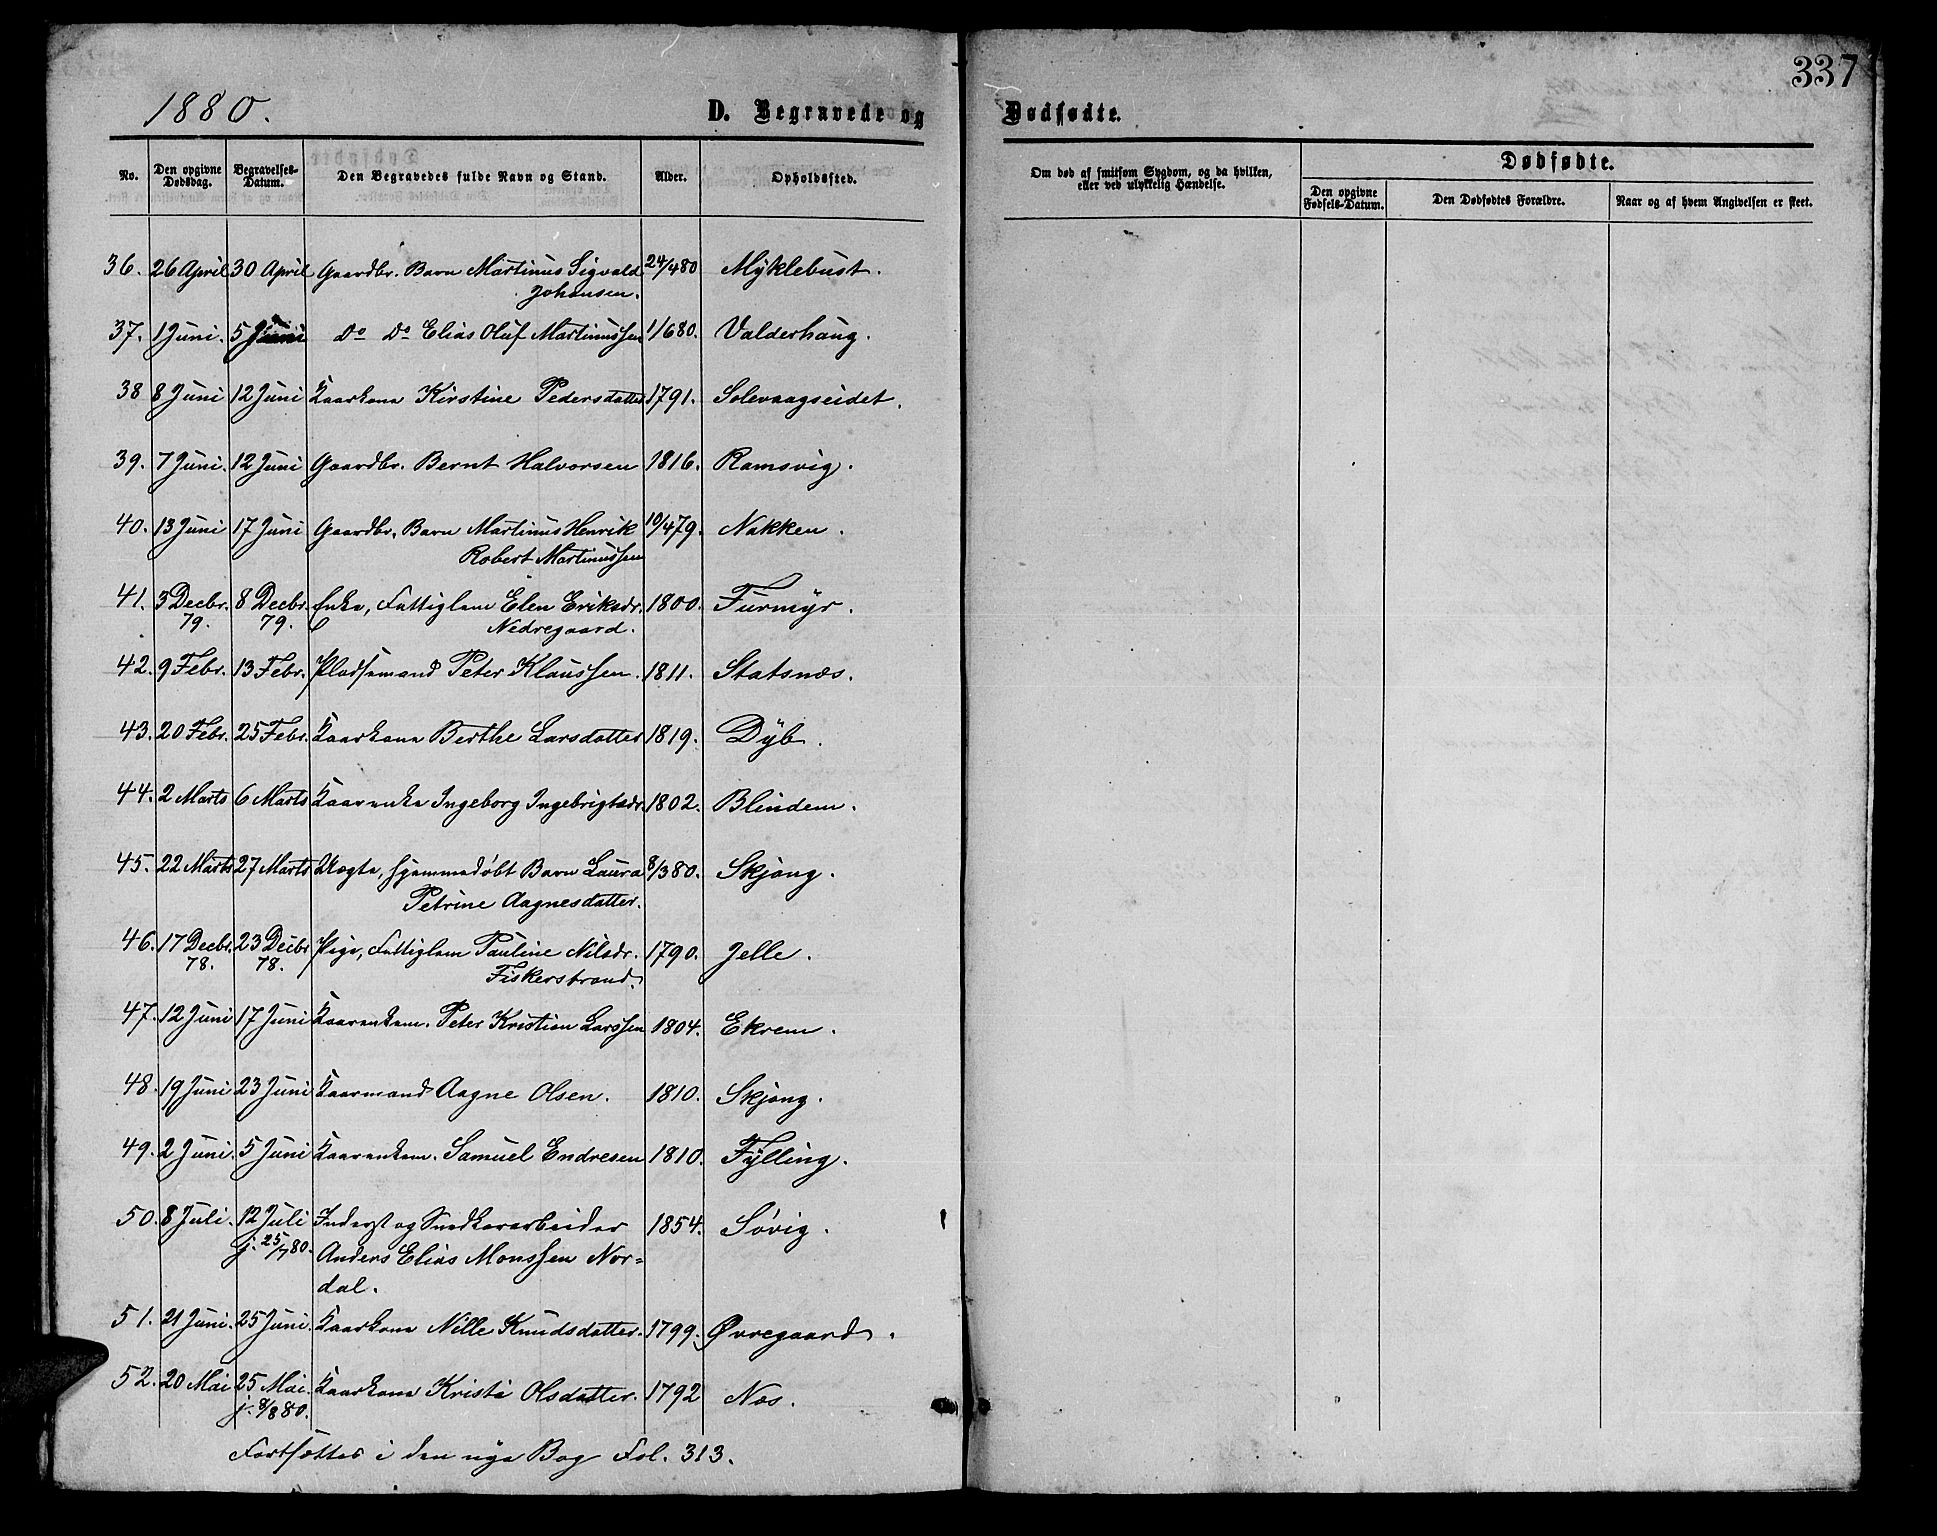 337
1880.
D. Begravede og Dødfødte.
No. Den opgivne Dødsdag. Begravelses-Datum. Den Begravedes fulde Navn og Stand. Alder. Opholdssted. Om død af smitsom Sygdom, og da hvilken, eller ved ulykkelig Hændelse. Dødfødte.
Den opgivne Fødsels-Datum. Den Dødfødtes Forældre. Naar og af hvem Angivelsen er skeet.
36. 26 April 30 April Gaardbr. Barn Martinus Sigvald 24/480 Myklebust.
Johansen.
37. 1 Juni. 5 Juni Do Do Elias Oluf Martinussen 1/680. Valderhaug.
38 8 Juni 12 Juni Kaarkona Kirstine Pedersdatter 1791. Solevaagseidet.
39. 7 Juni. 12 Juni Gaardbr. Bernt Halvorsen 1816. Ramsvig.
40. 13 Juni 17 Juni Gaardbr. Barn Martinus Henrik 10/479. Nakken.
Robert Martinussen
41. 3 Decbr. 8 Decbr. Enke, Fattiglem Elen Eriksdr. 1800. Furmyr.
79. 79. Nedregaard.
42. 9 Febr. 13 Febr. Pladsemand Peter Klaussen. 1811. Statsnæs.
43. 20 Febr. 25 Febr. Kaarkona Berthe Larsdatter 1819. Dyb.
44. 2 Marts 6 Marts Kaarenke Ingeborg Ingebrigtsdr. 1802. Blindem.
45. 22 Marts 27 Marts Uægte, hjemmedøbt Barn Laura 8/380. Skjong.
Petrine Aagnesdatter.
46. 17 Decbr. 23 Decbr Pige, Fattiglem Pauline Nilsdr. 1790. Jelle.
78. 78. Fiskerstrand.
47. 12 Juni 17 Juni Kaarenkem. Peter Kristian Larssen 1804. Ekrem.
48. 19 Juni 23 Juni Kaarmand Aagne Olsen. 1810. Skjong.
49. 2 Juni. 5 Juni Kaarenkem. Samuel Endresen 1810. Fylling.
50. 8 Juli. 12 Juli Inderst og Snedkerarbeider 1854. Søvig.
j. 25/780. Anders Elias Monssen Nor=
dal.
51. 21 Juni. 25 Juni. Kaarkona Nille Knudsdatter. 1799. Øvregaard.
52. 20 Mai 25 Mai. Kaarkona Kristi Olsdatter. 1792 Nos.
j. 8/880.
Fortsættes i den nye Bog Fol. 313.